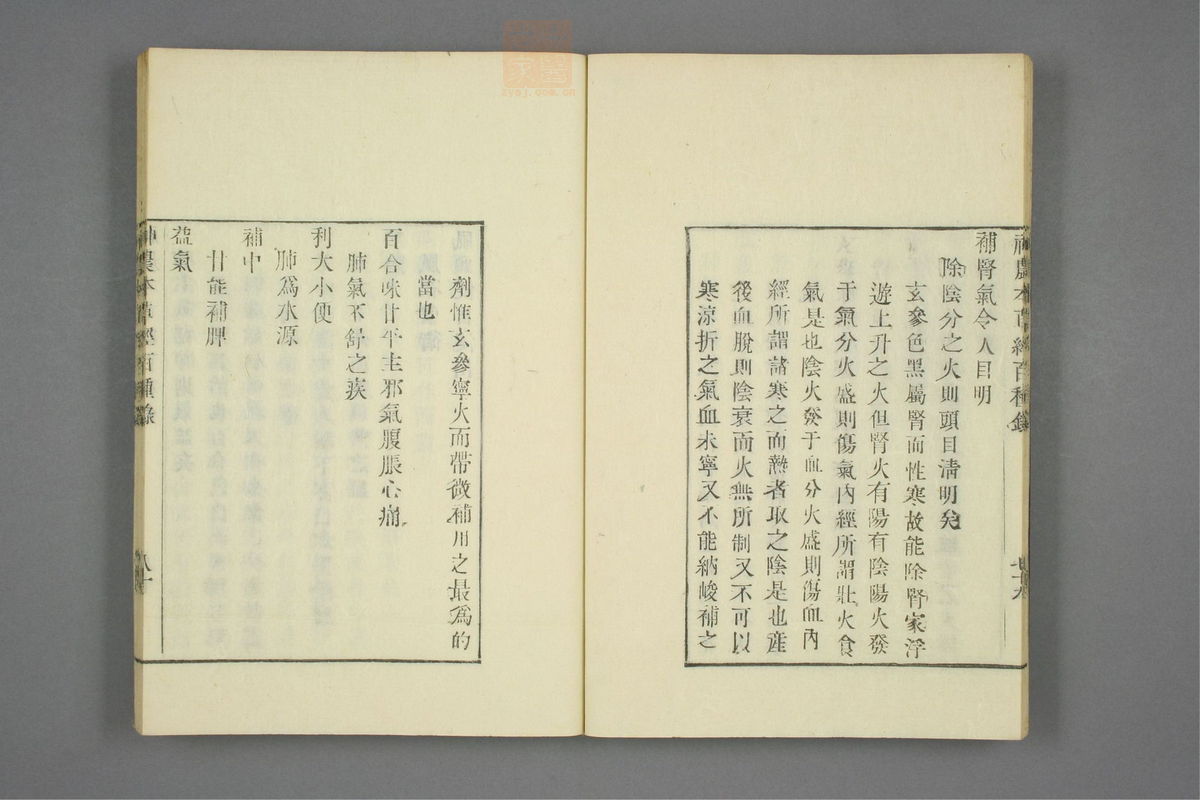 神農本草經百種錄
補腎氣令人目明
除陰分之火則頭目淸明矣
玄參色黑屬腎而性寒故能除腎家浮
遊上升之火但腎火有陽有陰陽火發
于氣分火盛則傷氣內經所謂壯火食
氣是也陰火發于血分火盛則傷血內
經所謂諸寒之而熱者取之陰是也產
後血脫則陰衰而火無所制又不可以
寒涼折之氣血未寧又不能納峻補之
劑惟玄參寧火而帶微補用之最爲的
當也
百合味甘平主邪氣腹脹心痛
肺氣不舒之疾
利大小便
肺爲水源
補中
甘能補脾
益氣
神農本草經百種錄
zysj.com.cn